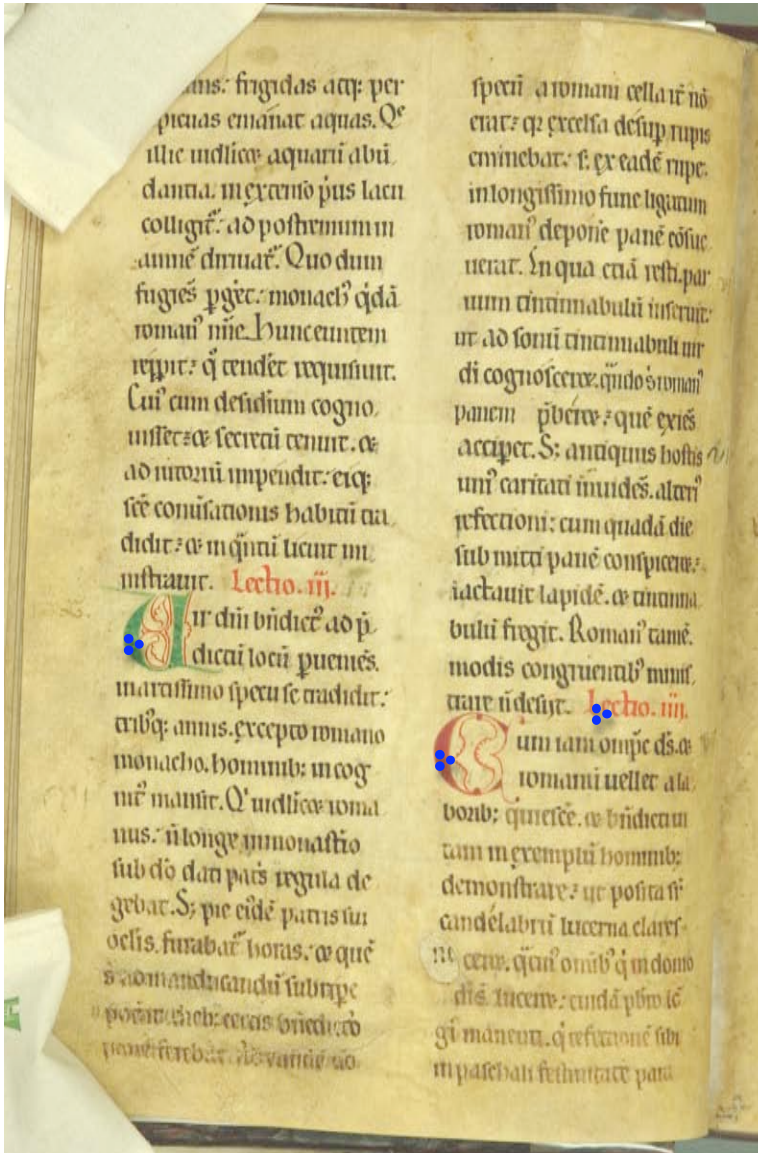 frigidas atq; per
picuas emanat aquas. Qͤ
illic uidlicꝫ aquarū abū
dantia. in extenso p̄us lacu
colligit᷑. ad postremum in
amnē diriuat᷑. Quo dum
fugiēs ꝑgͥet. monachꝰ q̇dā
romanꝰ nōie. hunc euntem
reꝑꝑit. q̊ tendēt requisiuit.
Cuiꝰ cum desidium cogno
uisset. ⁊ secretū tenuit. ⁊
adiutoriū impendit. eiq;
sc̄e conuͥsationis habitū tra
didit. ⁊ in q̊ntū licuit mi
nistrauit. Lectio. iij.
Uir dn̄i bn̄dictꝰ ad p̄
dictū locū ꝑueniēs.
in artissimo specu se tradidit.
tribꝰq; annis. excepto romano
monacho. hominib; incog
nitꝰ mansit. Qͥ uidlicꝫ roma
nus. n̄ longe in monastͥio
sub dō dati patͥs regula de
gebat. S; pie eidē patris sui
oclis. furabat᷑ horas. ⁊ quē
s̄ ad manducandū subripe
specū a romani cella it̄ nō
erat. qꝛ excelsa desuꝑ rupis
eminebat. s; ex eadē rupe.
in longissimo fune ligatum
romanꝰ deponͥe panē cōsue
uerat. In qua etiā resti. par
uum tintinnabulū inseruit.
ut ad sonū tintinnabuli uir
di cognosceret. q̄ndo s̄ romanꝰ
panem p̄beret. quē exiēs
acciꝑet. S; antiquus hostis
uniꝰ caritati inuidēs. alteriꝰ
refectioni. cum quadā die
submitti panē conspiceret.
iactauit lapidē. ⁊ tintinna
bulū fregit. Romanꝰ tamē.
modis congruentibꝰ minis
trare n̄ desiit. Lectio. iiij.
Cum iam omp̄c ds̄. ⁊
romanū uellet a la
borib; quiescͥe. ⁊ bn̄dicti ui
tam in exemplū hominib;
demonstrare. ut posita sͥ
candelabrū lucerna claresc
ceret. q̊tinꝰ omibꝰ q̇ in domo
dī s̄. luceret. cuidā pb̄ro lō
gͥ manenti. q̇ refectionē sibi
in paschali festiuitate para